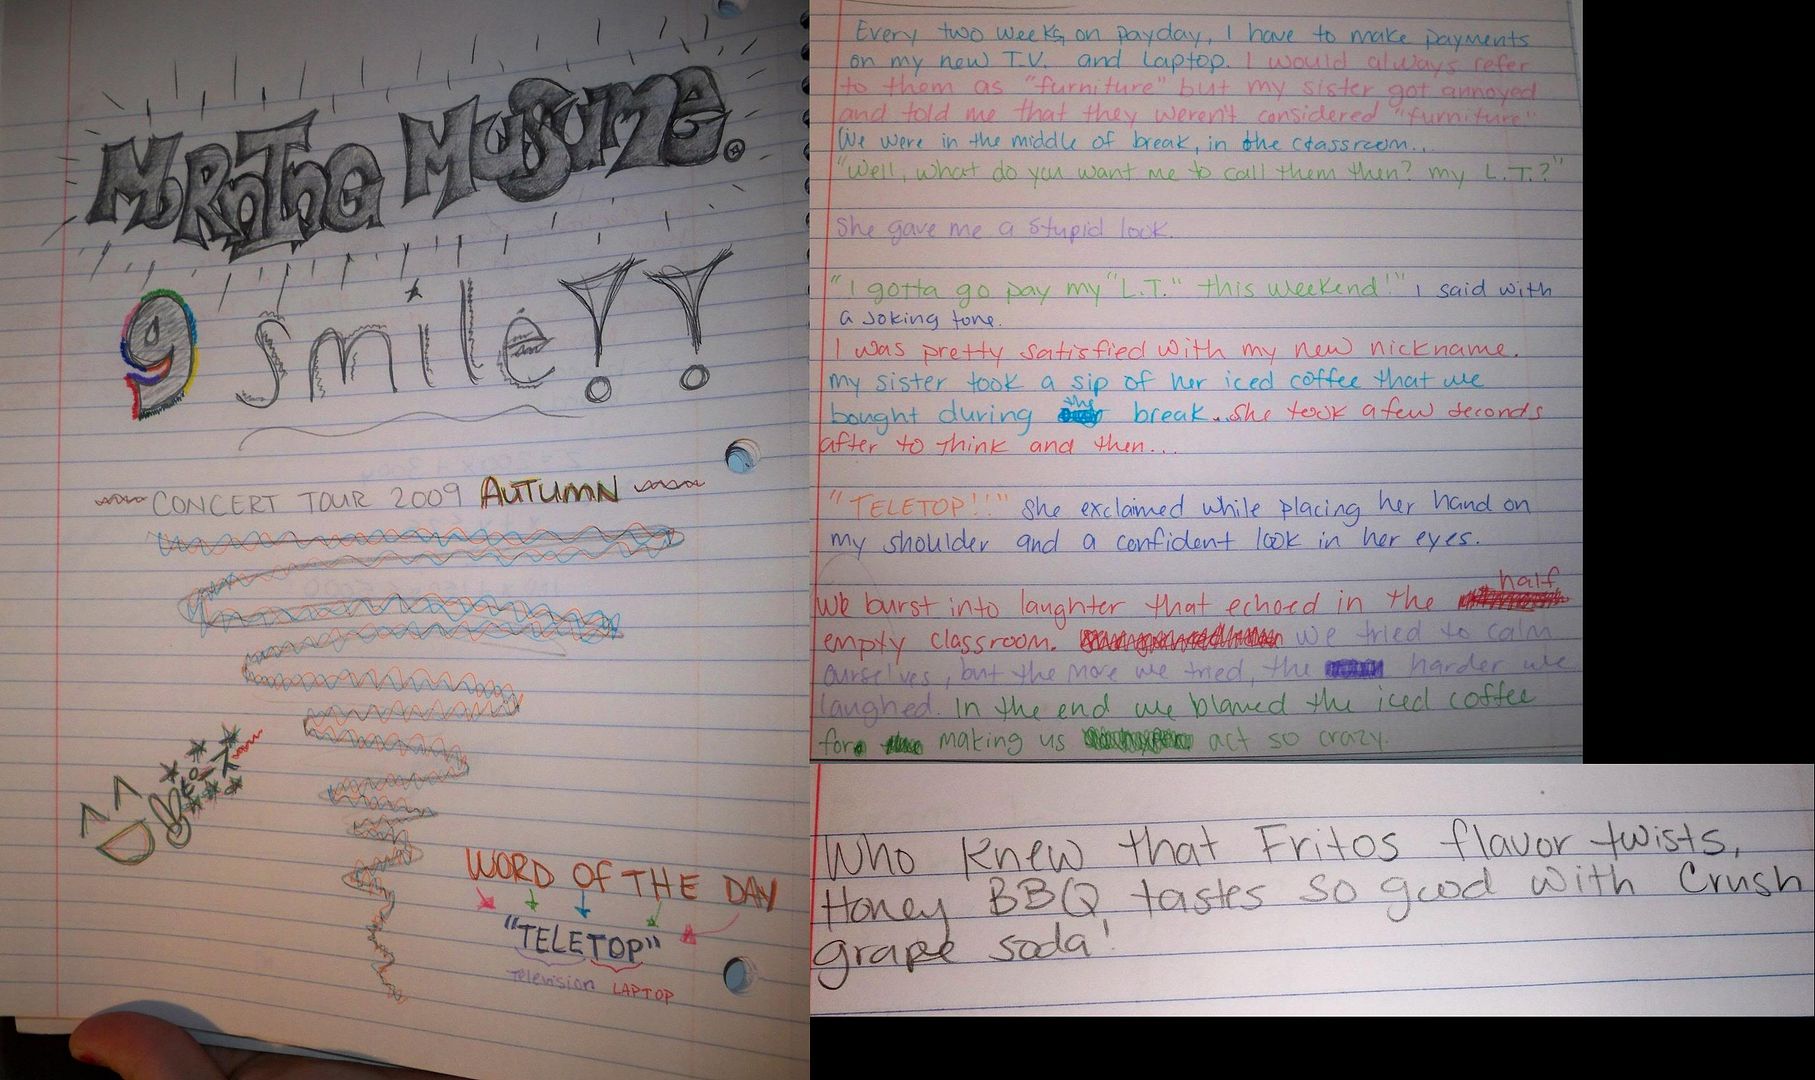 MORNING MUSUME.
9 smile!!
CONCERT TOUR 2009 AUTUMN
WORD OF THE DAY
"TELETOP"
Television LAPTOP
Every two weeks, on payday, I have to make payments
on my new T.V. and Laptop. I would always refer
to them as "furniture" but my sister got annoyed
and told me that they weren't considered "furniture"
We were in the middle of break, in the classroom...
"Well, what do you want me to call them then? my L.T.?"
She gave me a stupid look.
"I gotta go pay my "L.T." this weekend!" I said with
a joking tone.
I was pretty satisfied with my new nickname.
my sister took a sip of her iced coffee that we
bought during the break. She took a few seconds
after to think and then...
"TELETOP!!" She exclaimed while placing her hand on
my shoulder and a confident look in her eyes.
We burst into laughter that echoed in the half
empty classroom. We tried to calm
ourselves, but the more we tried, the harder we
laughed. In the end we blamed the iced coffee
for making us act so crazy.
Who knew that Fritos flavor twists,
Honey BBQ tastes so good with Crush
grape soda!